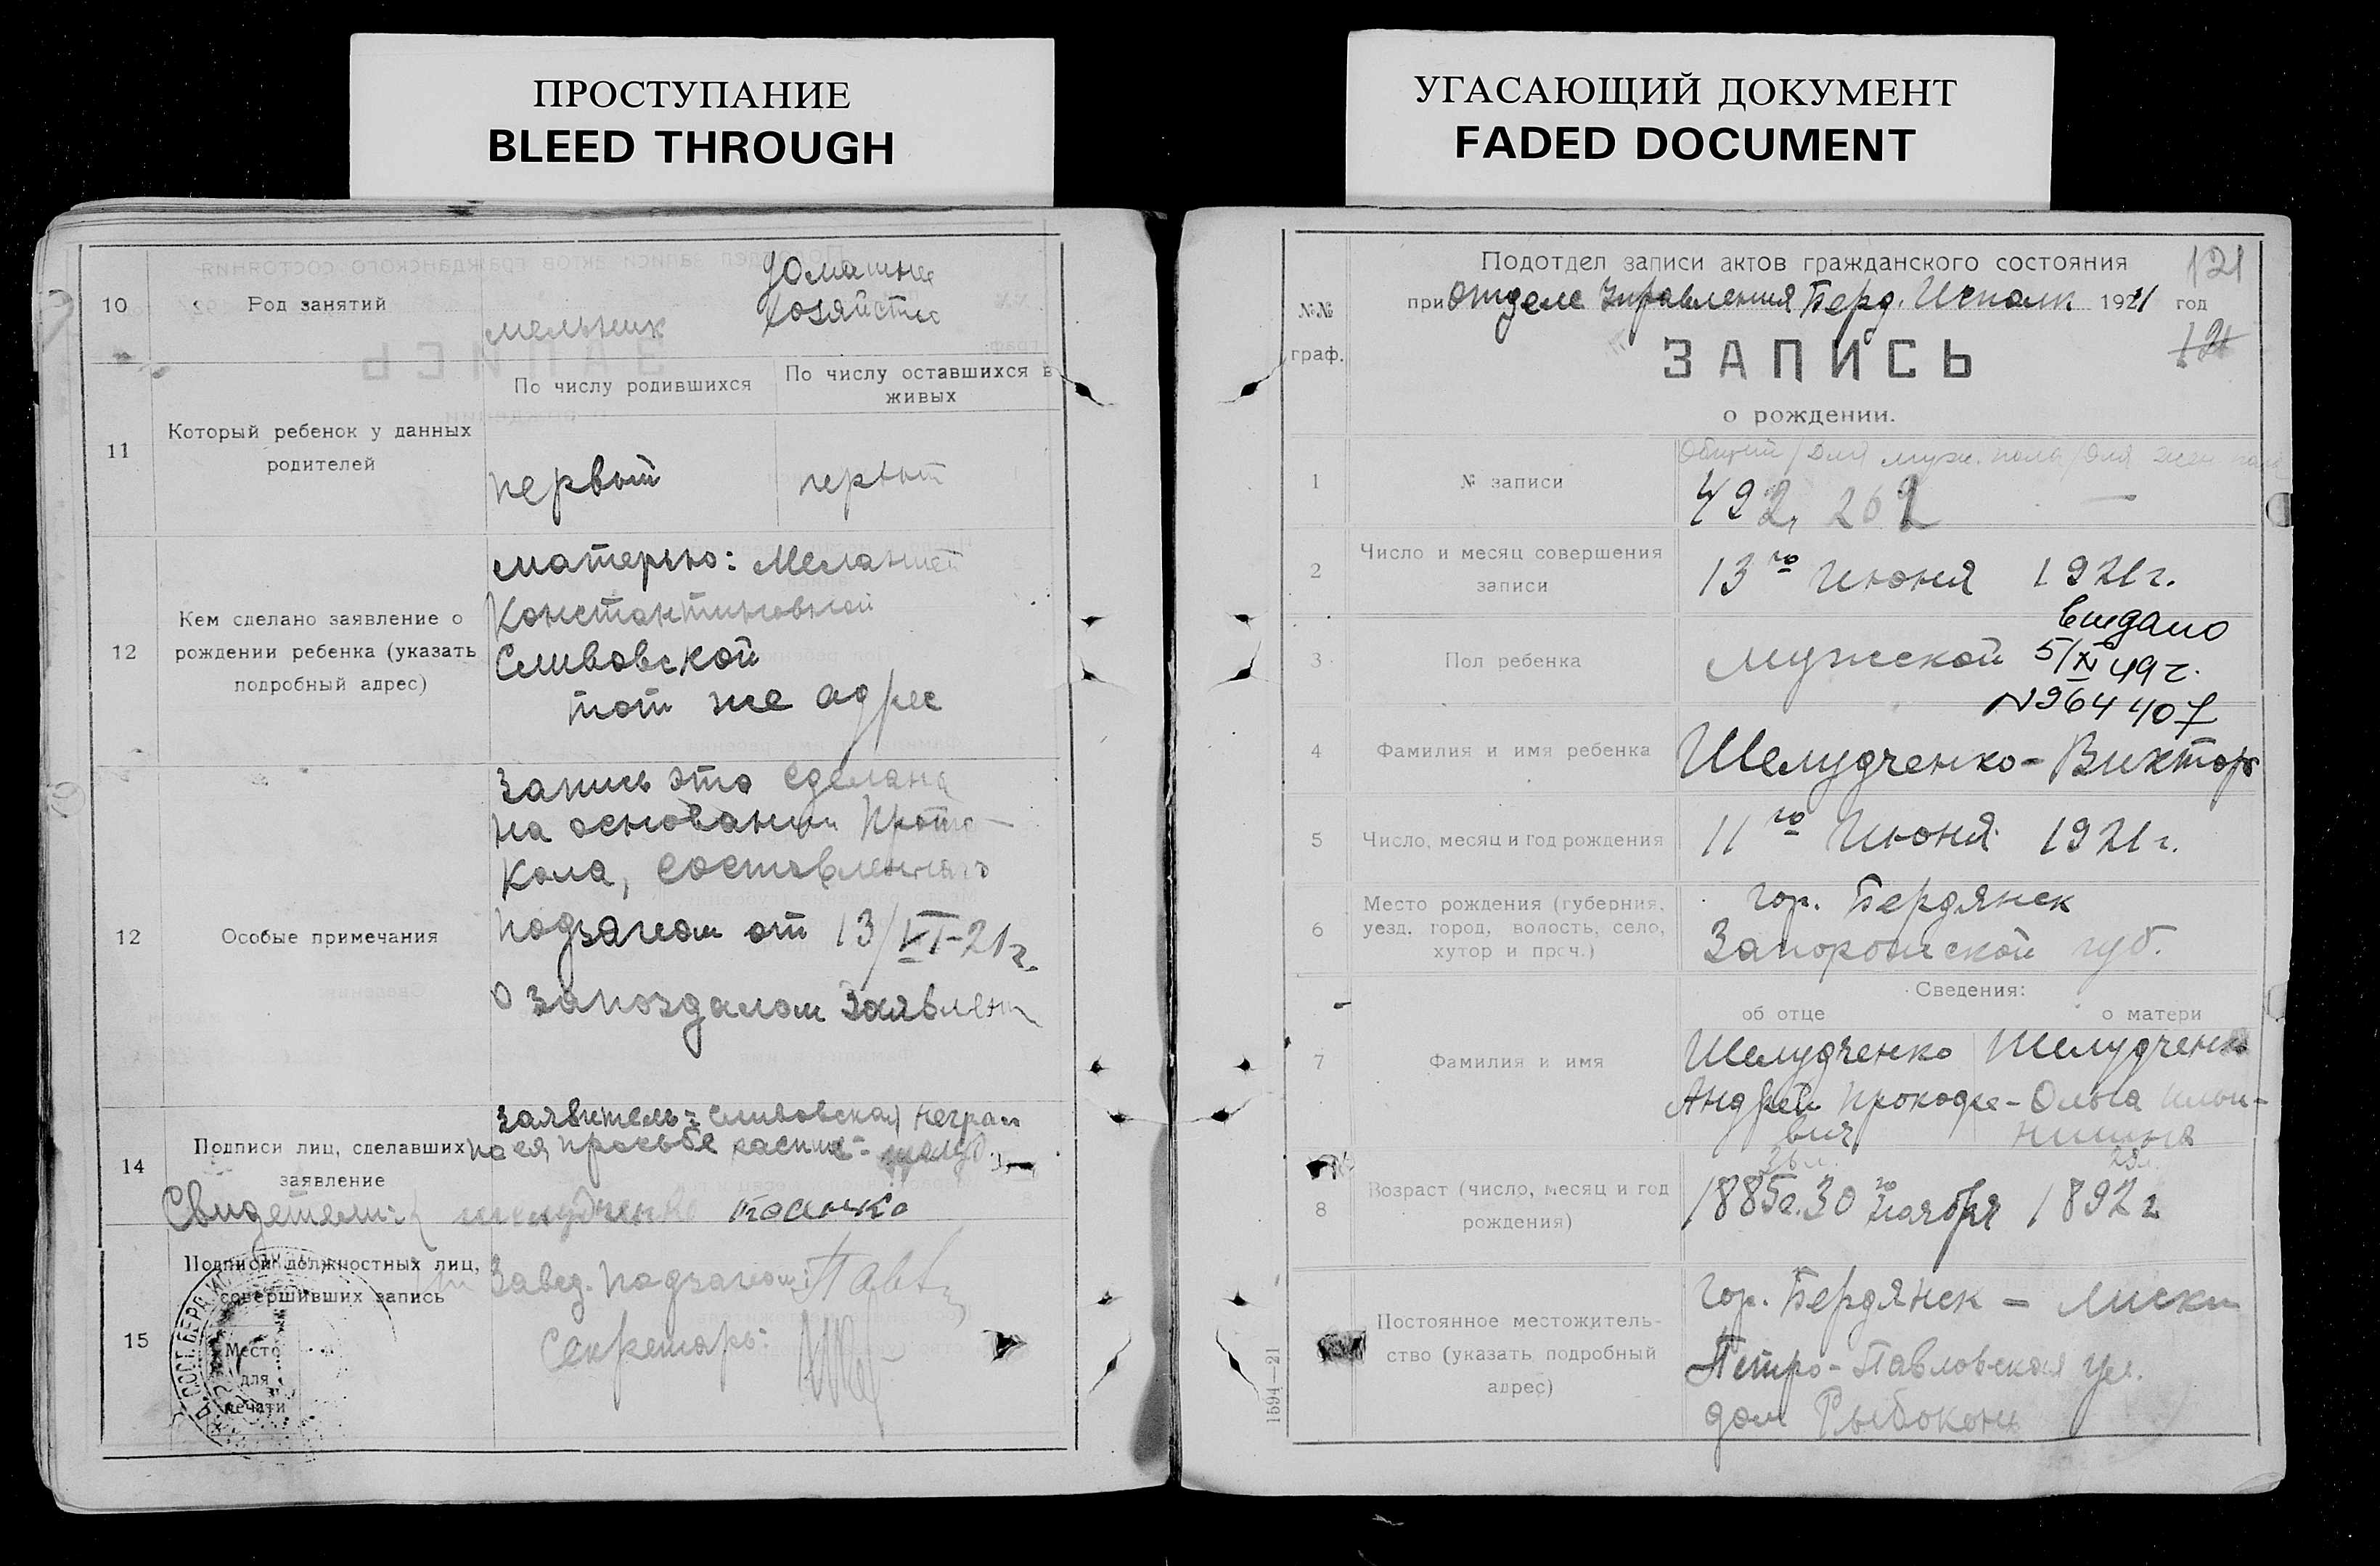 ПРОСТУПАНИЕ
BLEED THROUGH
10
Род занятий
мельник
домашнее
хозяйство
11
Который ребенок у данных
родителей
По числу родившихся
По числу оставшихся в
живых
первый
первый
12
Кем сделано заявление о
рождении ребенка (указать
подробный адрес)
матерью: Меланией
Константиновной
Сливовской
тот же адрес
12
Особые примечания
Запись эта сделана
на основании Прото-
кола, составленнаго
подзагсом от 13/VI-21г.
о запоздалом заявлен
14
Подписи лиц, сделавших
заявление
Заявитель: Сливовская неграм
по ея просьбе распис-
Свидетели: Шелудченко
15
Подписи должностных лиц,
совершивших запись
Место
для
печати
Завед. подзагсом:
Секретарь:
УГАСАЮЩИЙ ДОКУМЕНТ
FADED DOCUMENT
№№
граф.
Подотдел записи актов гражданского состояния
121
при Отделе Управления Берд. Исполк 1921 год
ЗАПИСЬ
121
о рождении.
1
№ записи
Общий / для муж. пола / для жен пола
492, 262 —
2
Число и месяц совершения
записи
13го Июня 1921г.
3
Пол ребенка
мужской
выдано
5/XI 49г.
№964407
4
Фамилия и имя ребенка
Шелудченко - Виктор
5
Число, месяц и год рождения
11го Июня 1921г.
6
Место рождения (губерния,
уезд, город, волость, село,
хутор и проч.)
гор. Бердянск
Запорожской губ.
Сведения:
об отце
о матери
7
Фамилия и имя
Шелудченко
Андрей Прокофье-
вич
Шелудченко
Ольга Ильи-
нична
8
Возраст (число, месяц и год
рождения)
1885г. 30го Ноября
1892г
Постоянное местожитель-
ство (указать подробный
адрес)
гор. Бердянск - Лиски
Петро-Павловская ул.
дом Рыбоконь
1594—21